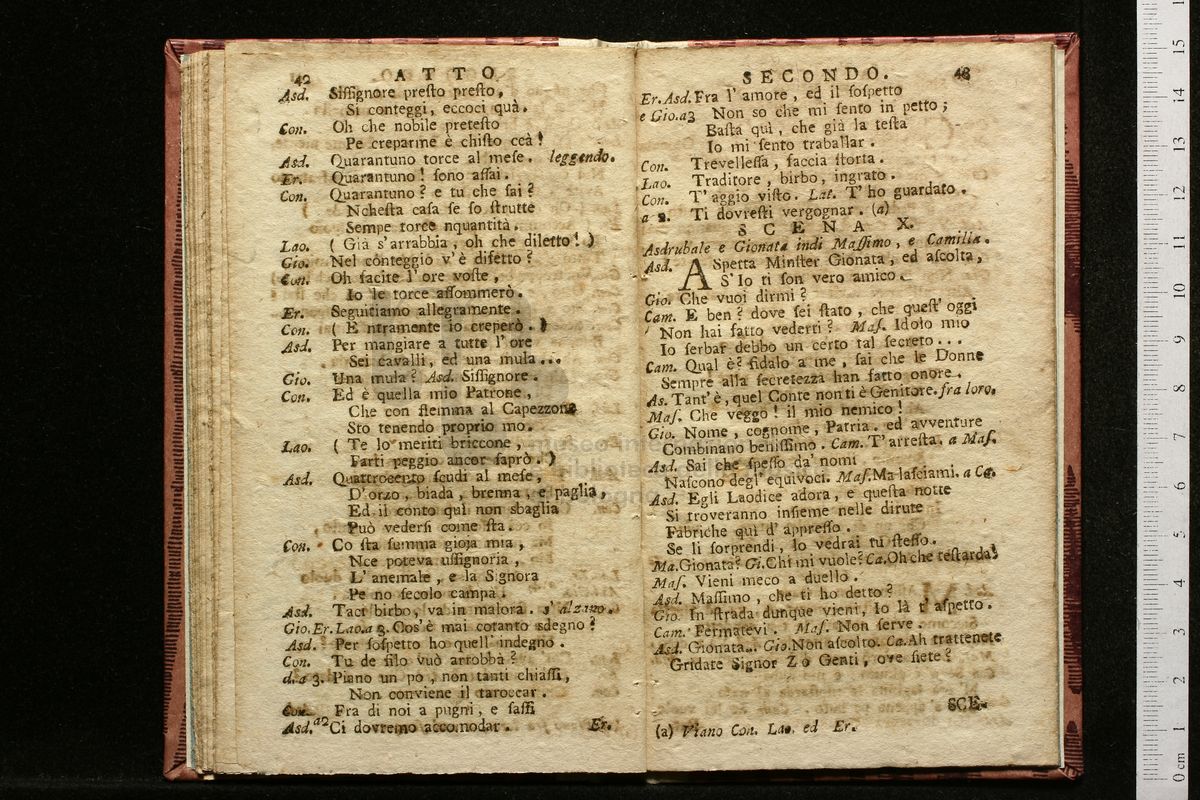 42 ATTO
Asd. Sissignore presto presto,
Si conteggi, eccoci quà.
Con. Oh che nobile pretesto
Pe creparme è chisto ccà!
Asd. Quarantuno torce al mese. leggendo.
Er. Quarantuno! sono assai.
Con. Quarantuno? e tu che sai?
Nchesta casa se so strutte
Sempe torce nquantità.
Lao. (Già s'arrabbia, oh che diletto!)
Gio. Nel conteggio v'è difetto?
Con. Oh facite l'ore voste,
Io le torce assommerò.
Er. Seguitiamo allegramente.
Con. (E ntramente io creperò.)
Asd. Per mangiare a tutte l'ore
Sei cavalli, ed una mula...
Gio. Una mula? Asd. Sissignore.
Con. Ed è quella mio Patrone,
Che con stemma al Capezzone
Sto tenendo proprio mo.
Lao. (Te lo meriti briccone,
Farti peggio ancor saprò.)
Asd. Quattrocento scudi al mese,
D'orzo, biada, brenna, e paglia,
Ed il conto quì non sbaglia
Può vedersi come sta.
Con. Co sta summa gioja mia,
Nce poteva ussignoria,
L'anemale, e la Signora
Pe no secolo campà.
Asd. Taci birbo, va in malora. s'alzano.
Gio.Er.Lao.a 3. Cos'è mai cotanto sdegno?
Asd. Per sospetto ho quell'indegno.
Con. Tu de filo vuò arrobbà?
d.a 3. Piano un po, non tanti chiassi,
Non conviene il taroccar.
Con. Fra di noi a pugni, e sassi
Asd. a2 Ci dovremo accomodar.
Er.
SECONDO. 43
Er.Asd. Fra l'amore, ed il sospetto
e Gio.a3 Non so che mi sento in petto;
Basta quì, che già la testa
Io mi sento traballar.
Con. Trevellessa, faccia storta.
Lao. Traditore, birbo, ingrato.
Con. T'aggio visto. Lat. T'ho guardato.
a 2. Ti dovresti vergognar. (a)
SCENA X.
Asdrubale e Gionata indi Massimo, e Camilla.
Asd. ASpetta Minster Gionata, ed ascolta,
S'Io ti son vero amico.
Gio. Che vuoi dirmi?
Cam. E ben? dove sei stato, che quest'oggi
Non hai fatto vederti? Mas. Idolo mio
Io serbar debbo un certo tal secreto...
Cam. Qual è? fidalo a me, sai che le Donne
Sempre alla secretezza han fatto onore.
As. Tant'è, quel Conte non ti è Genitore. fra loro.
Mas. Che veggo! il mio nemico!
Gio. Nome, cognome, Patria. ed avventure
Combinano benissimo. Cam. T'arresta. a Mas.
Asd. Sai che spesso da' nomi
Nascono degl'equivoci. Mas. Ma lasciami. a Ca.
Asd. Egli Laodice adora, e questa notte
Si troveranno insieme nelle dirute
Fabriche quì d'appresso.
Se li sorprendi, lo vedrai tu stesso.
Ma. Gionata? Gi. Chi mi vuole? Ca. Oh che testarda!
Mas. Vieni meco a duello.
Asd. Massimo, che ti ho detto?
Gio. In strada dunque vieni, Io là t'aspetto.
Cam. Fermatevi. Mas. Non serve.
Asd. Gionata... Gio. Non ascolto. Ca. Ah trattenete
Gridate Signor Zo Genti, ove siete?
SCE-
(a) Viano Con. Lao. ed Er.